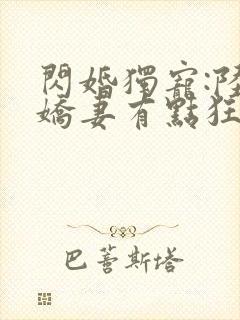 閃婚獨寵:陸
嬌妻有點狂
巴菩斯塔